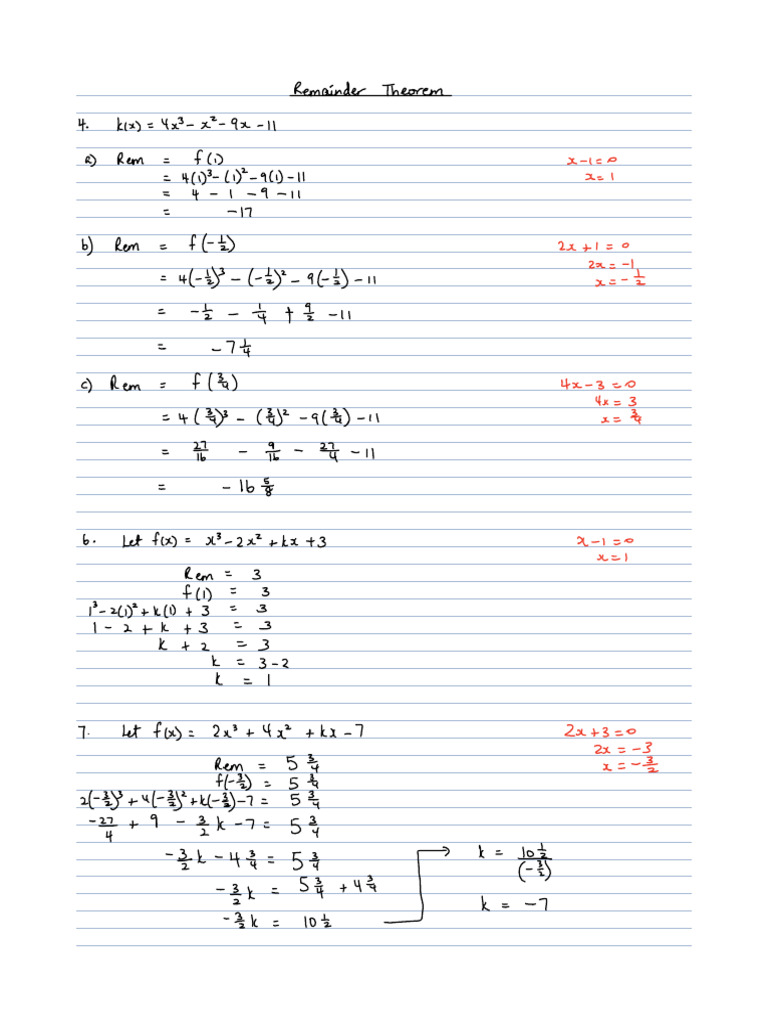 Remainder Theorem
4. k(x) = 4x³ - x² - 9x - 11
a) Rem = f(1) x-1=0
= 4(1)³ - (1)² - 9(1) - 11 x=1
= 4 - 1 - 9 - 11
= -17
b) Rem = f(-1/2) 2x+1=0
2x=-1
= 4(-1/2)³ - (-1/2)² - 9(-1/2) - 11 x=-1/2
= -1/2 - 1/4 + 9/2 - 11
= -7 1/4
c) Rem = f(3/4) 4x-3=0
4x=3
= 4(3/4)³ - (3/4)² - 9(3/4) - 11 x=3/4
= 27/16 - 9/16 - 27/4 - 11
= -16 5/8
6. Let f(x) = x³ - 2x² + kx + 3 x-1=0
x=1
Rem = 3
f(1) = 3
1³ - 2(1)² + k(1) + 3 = 3
1 - 2 + k + 3 = 3
k + 2 = 3
k = 3-2
k = 1
7. Let f(x) = 2x³ + 4x² + kx - 7 2x+3=0
2x=-3
Rem = 5 3/4 x=-3/2
f(-3/2) = 5 3/4
2(-3/2)³ + 4(-3/2)² + k(-3/2) - 7 = 5 3/4
-27/4 + 9 - 3/2 k - 7 = 5 3/4
-3/2 k - 4 3/4 = 5 3/4
-3/2 k = 5 3/4 + 4 3/4
-3/2 k = 10 1/2
k = 10 1/2 / (-3/2)
k = -7